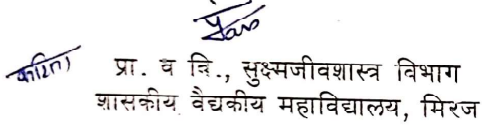 करिता प्रा. व वि., सुक्ष्मजीवशास्त्र विभाग
शासकीय वैद्यकीय महाविद्यालय, मिरज